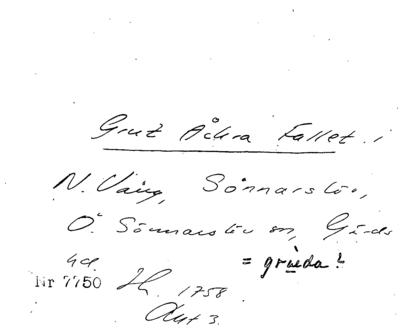 Grut Åkra Fallet i
N. Vång, Sönnarslöv,
Ö. Sönnarslöv sn, Gärds
hd. = grúda?
Nr 7750 1758
Akt 3.